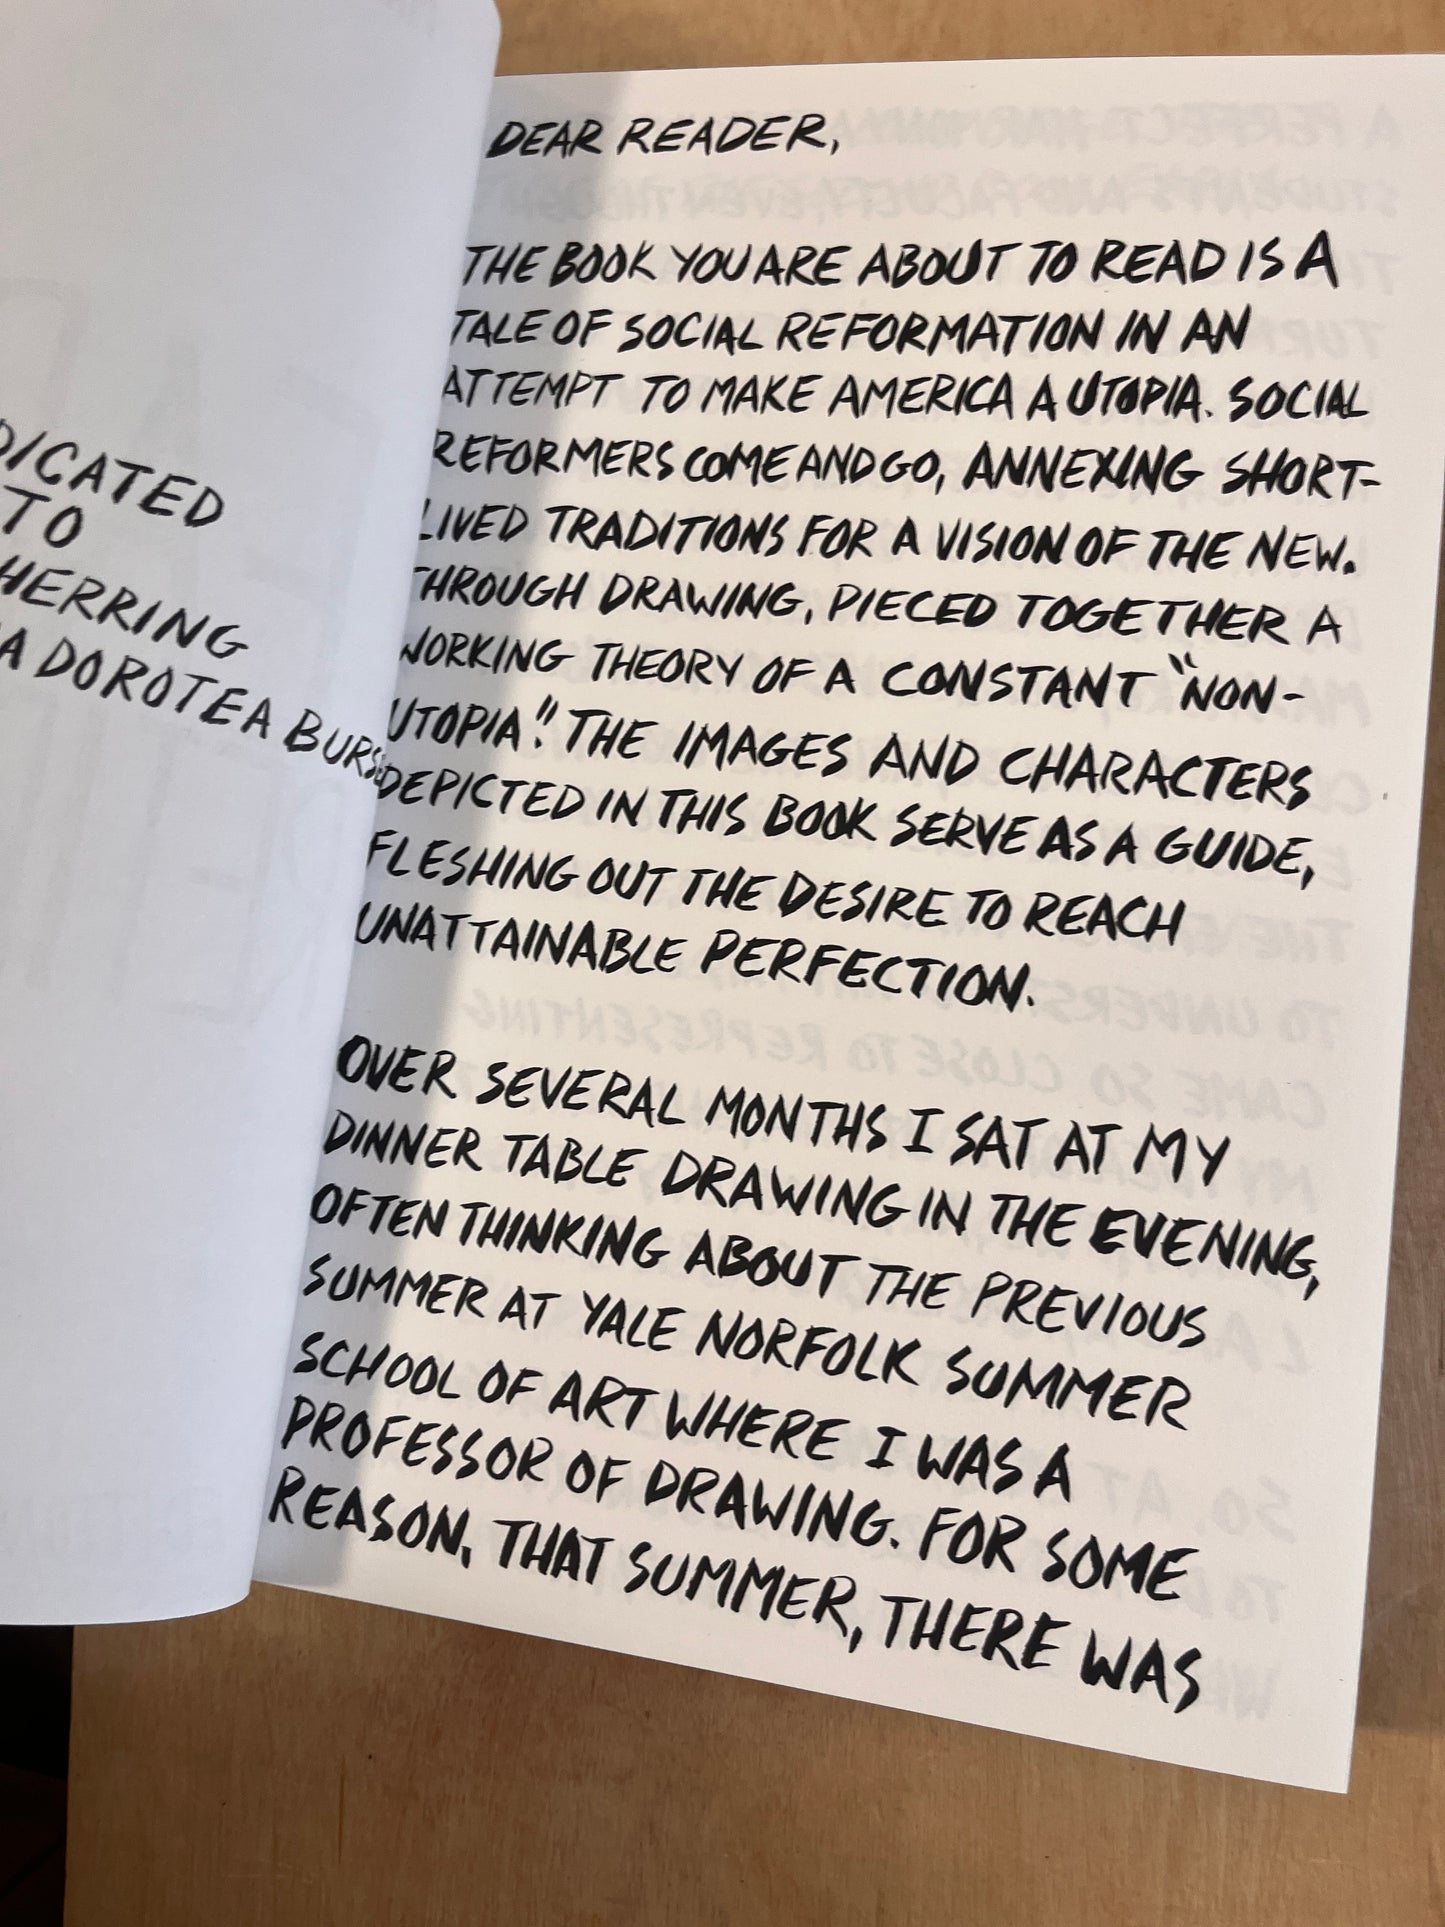 TO
HERRING
DOROTEA
DEAR READER,
THE BOOK YOU ARE ABOUT TO READ IS A
TALE OF SOCIAL REFORMATION IN AN
ATTEMPT TO MAKE AMERICA A UTOPIA. SOCIAL
REFORMERS COME AND GO, ANNEXING SHORT-
LIVED TRADITIONS FOR A VISION OF THE NEW.
THROUGH DRAWING, PIECED TOGETHER A
WORKING THEORY OF A CONSTANT "NON-
UTOPIA". THE IMAGES AND CHARACTERS
DEPICTED IN THIS BOOK SERVE AS A GUIDE,
FLESHING OUT THE DESIRE TO REACH
UNATTAINABLE PERFECTION.
OVER SEVERAL MONTHS I SAT AT MY
DINNER TABLE DRAWING IN THE EVENING,
OFTEN THINKING ABOUT THE PREVIOUS
SUMMER AT YALE NORFOLK SUMMER
SCHOOL OF ART WHERE I WAS A
PROFESSOR OF DRAWING. FOR SOME
REASON, THAT SUMMER, THERE WAS